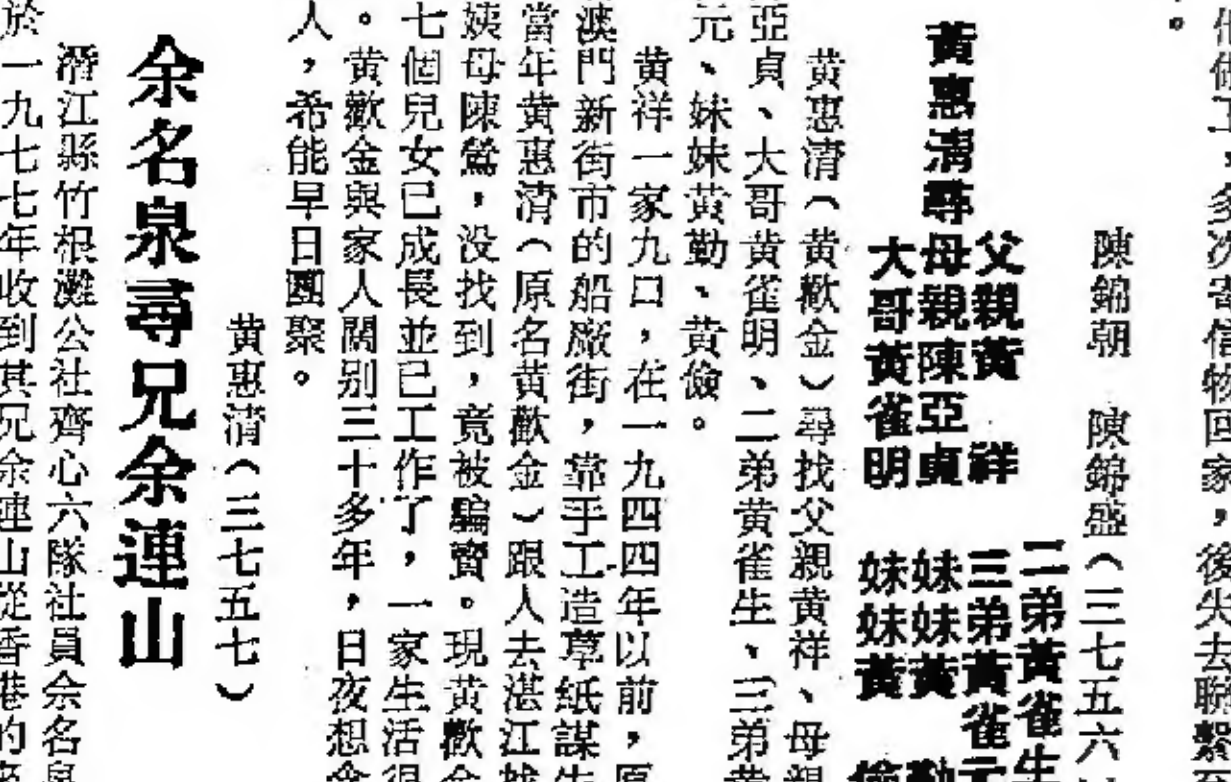 。
他做工，多次寄信物回家，後失去聯繫
陳錦朝　陳錦盛（三七五六
黃惠清尋
父親黃祥
母親陳亞貞
大哥黃雀明
二弟黃雀生
三弟黃雀元
妹妹黃勤
妹妹黃儉
黄惠清（黄歡金）尋找父親黄祥、母親
亞貞、大哥黄雀明、二弟黄雀生、三弟黄
元、妹妹黄勤、黄儉。
黄祥一家九口，在一九四四年以前，原
澳門新街市的船廠街，靠手工造草紙謀生
當年黄惠清（原名黄歡金）跟人去湛江找
姨母陳鶯，没找到，竟被騙賣。現黄歡金
七個兒女已成長並已工作了，一家生活得
。黄歡金與家人闊别三十多年，日夜想念
人，希能早日團聚。
黄惠清（三七五七）
余名泉尋兄余連山
潛江縣竹根灘公社齊心六隊社員余名泉
於一九七七年收到其兄余連山從香港的來